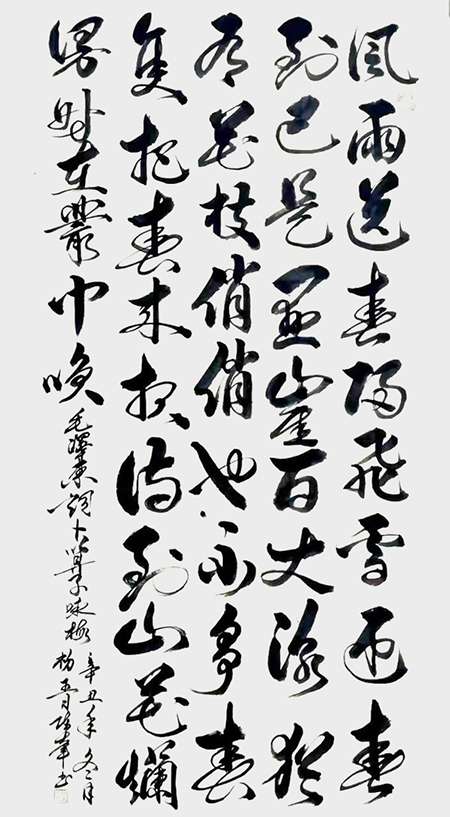 風雨送春歸飛雪迎春
到已是懸崖百丈冰猶
有花枝俏俏也不爭春
隻把春來報待到山花爛
漫她在叢中笑
毛澤東詞卜算子咏梅
辛丑年冬月